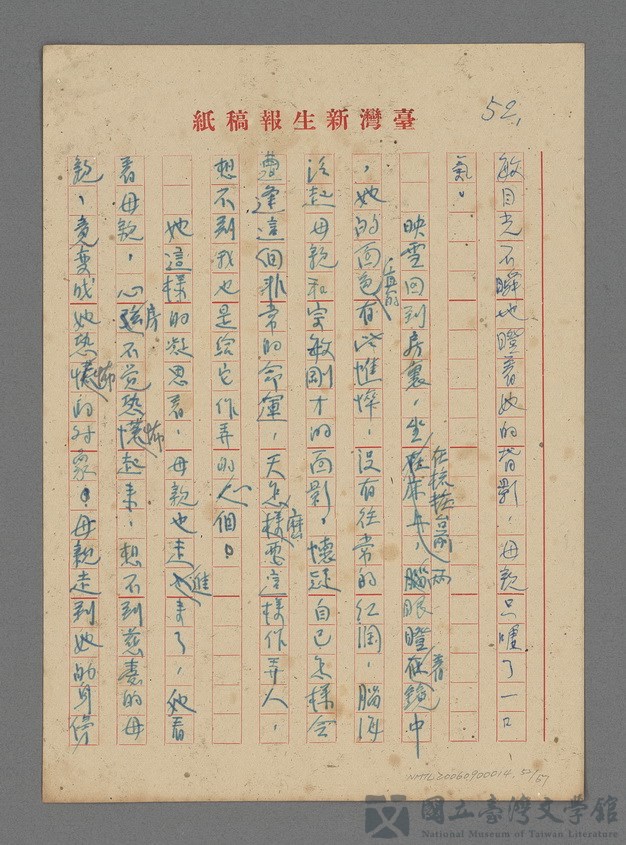 52.
臺灣新生報稿紙
敏目光不瞬地瞪着她的背影，母親只嘆了一口
氣。
映雪回到房裏，坐在梳粧台前，兩眼瞪着鏡中
，她的面色有些憔悴，沒有往常的紅潤，腦海
浮起母親和宗敏剛才的面影，懷疑自己怎樣會
遭逢這個非常的命運，天怎麼要這樣作弄人，
想不到我也是給它作弄的一個。
她這樣的凝思着，母親也走進來了，她看
着母親，心房不覺恐怖起來，想不到慈愛的母
親，竟變成她恐怖的對象。母親走到她的身傍
NMTL20060900014 52/57
國立臺灣文學館
National Museum of Taiwan Literature